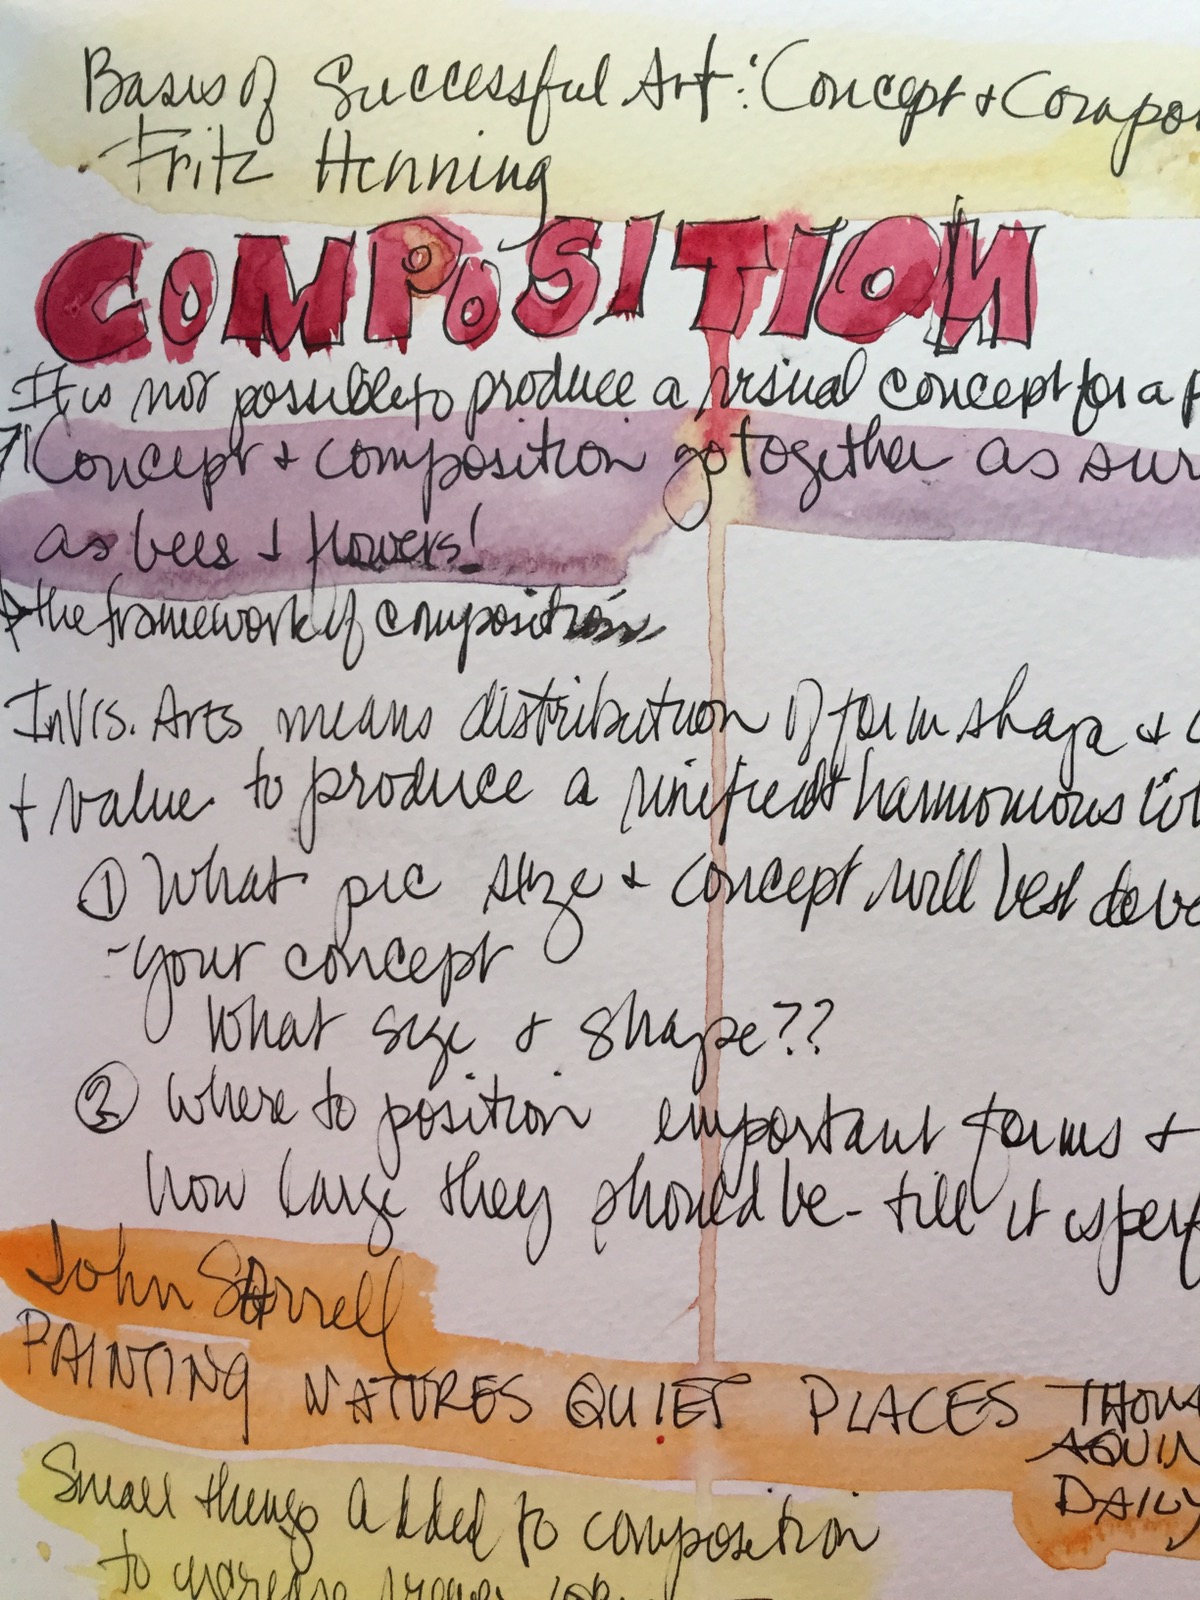 Basis of Successful Art: Concept & Compos
Fritz Henning
COMPOSITION
It is not possible to produce a visual concept for a p
Concept & composition go together as sur
as bees & flowers!
the framework of composition
In Vis. Arts means distribution of form shape & c
+ value to produce a unified & harmonious
① What pic size & concept will best deve
-your concept
What size & shape??
② Where to position important forms &
how large they should be - till it is perf
John Sorrell
PAINTING NATURES QUIET PLACES THOMA
AQUIN
DAILY
Small things added to composition
to increase